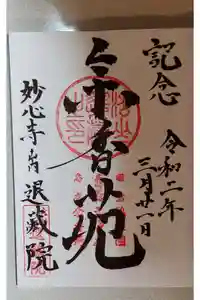 記念
令和二年
三月廿一日
余香苑
妙心寺山内
退蔵院